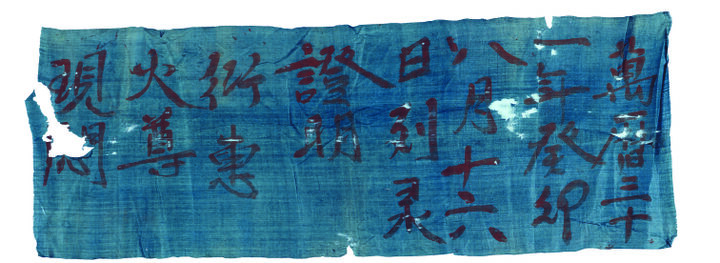 萬曆三十
一年癸卯
八月十六
日列
證明
衍惠
火尊
現